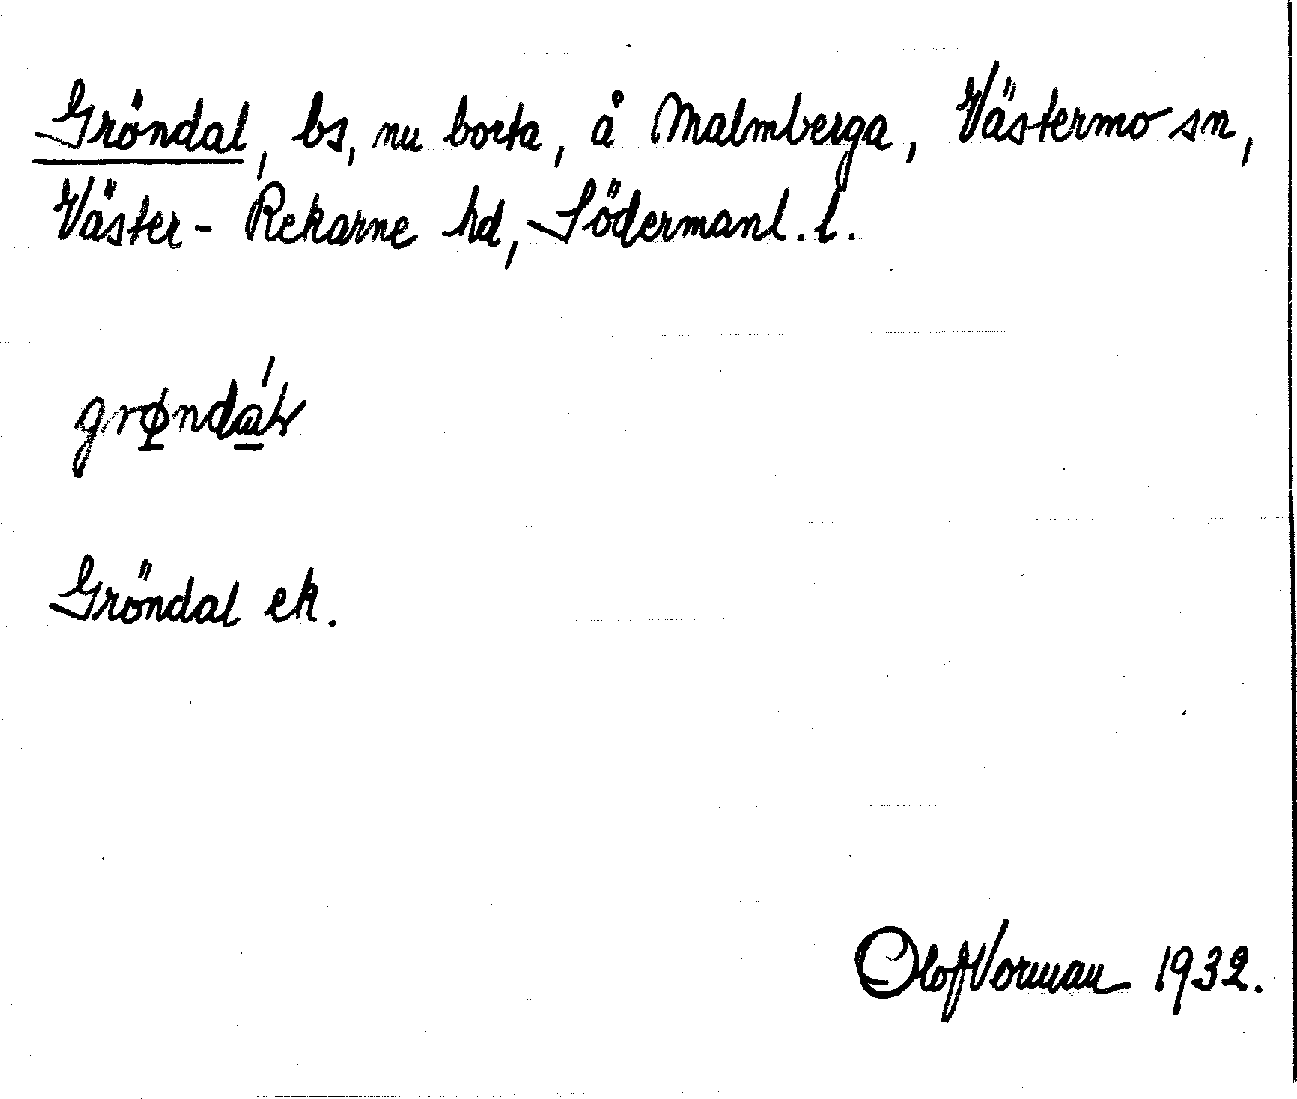 Gröndal, bs, nu borta, å Malmberga, Västermo sn,
Väster-Rekarne hd, Södermanl. l.
grøndáɫ
Gröndal ek.
Olof Vorman 1932.